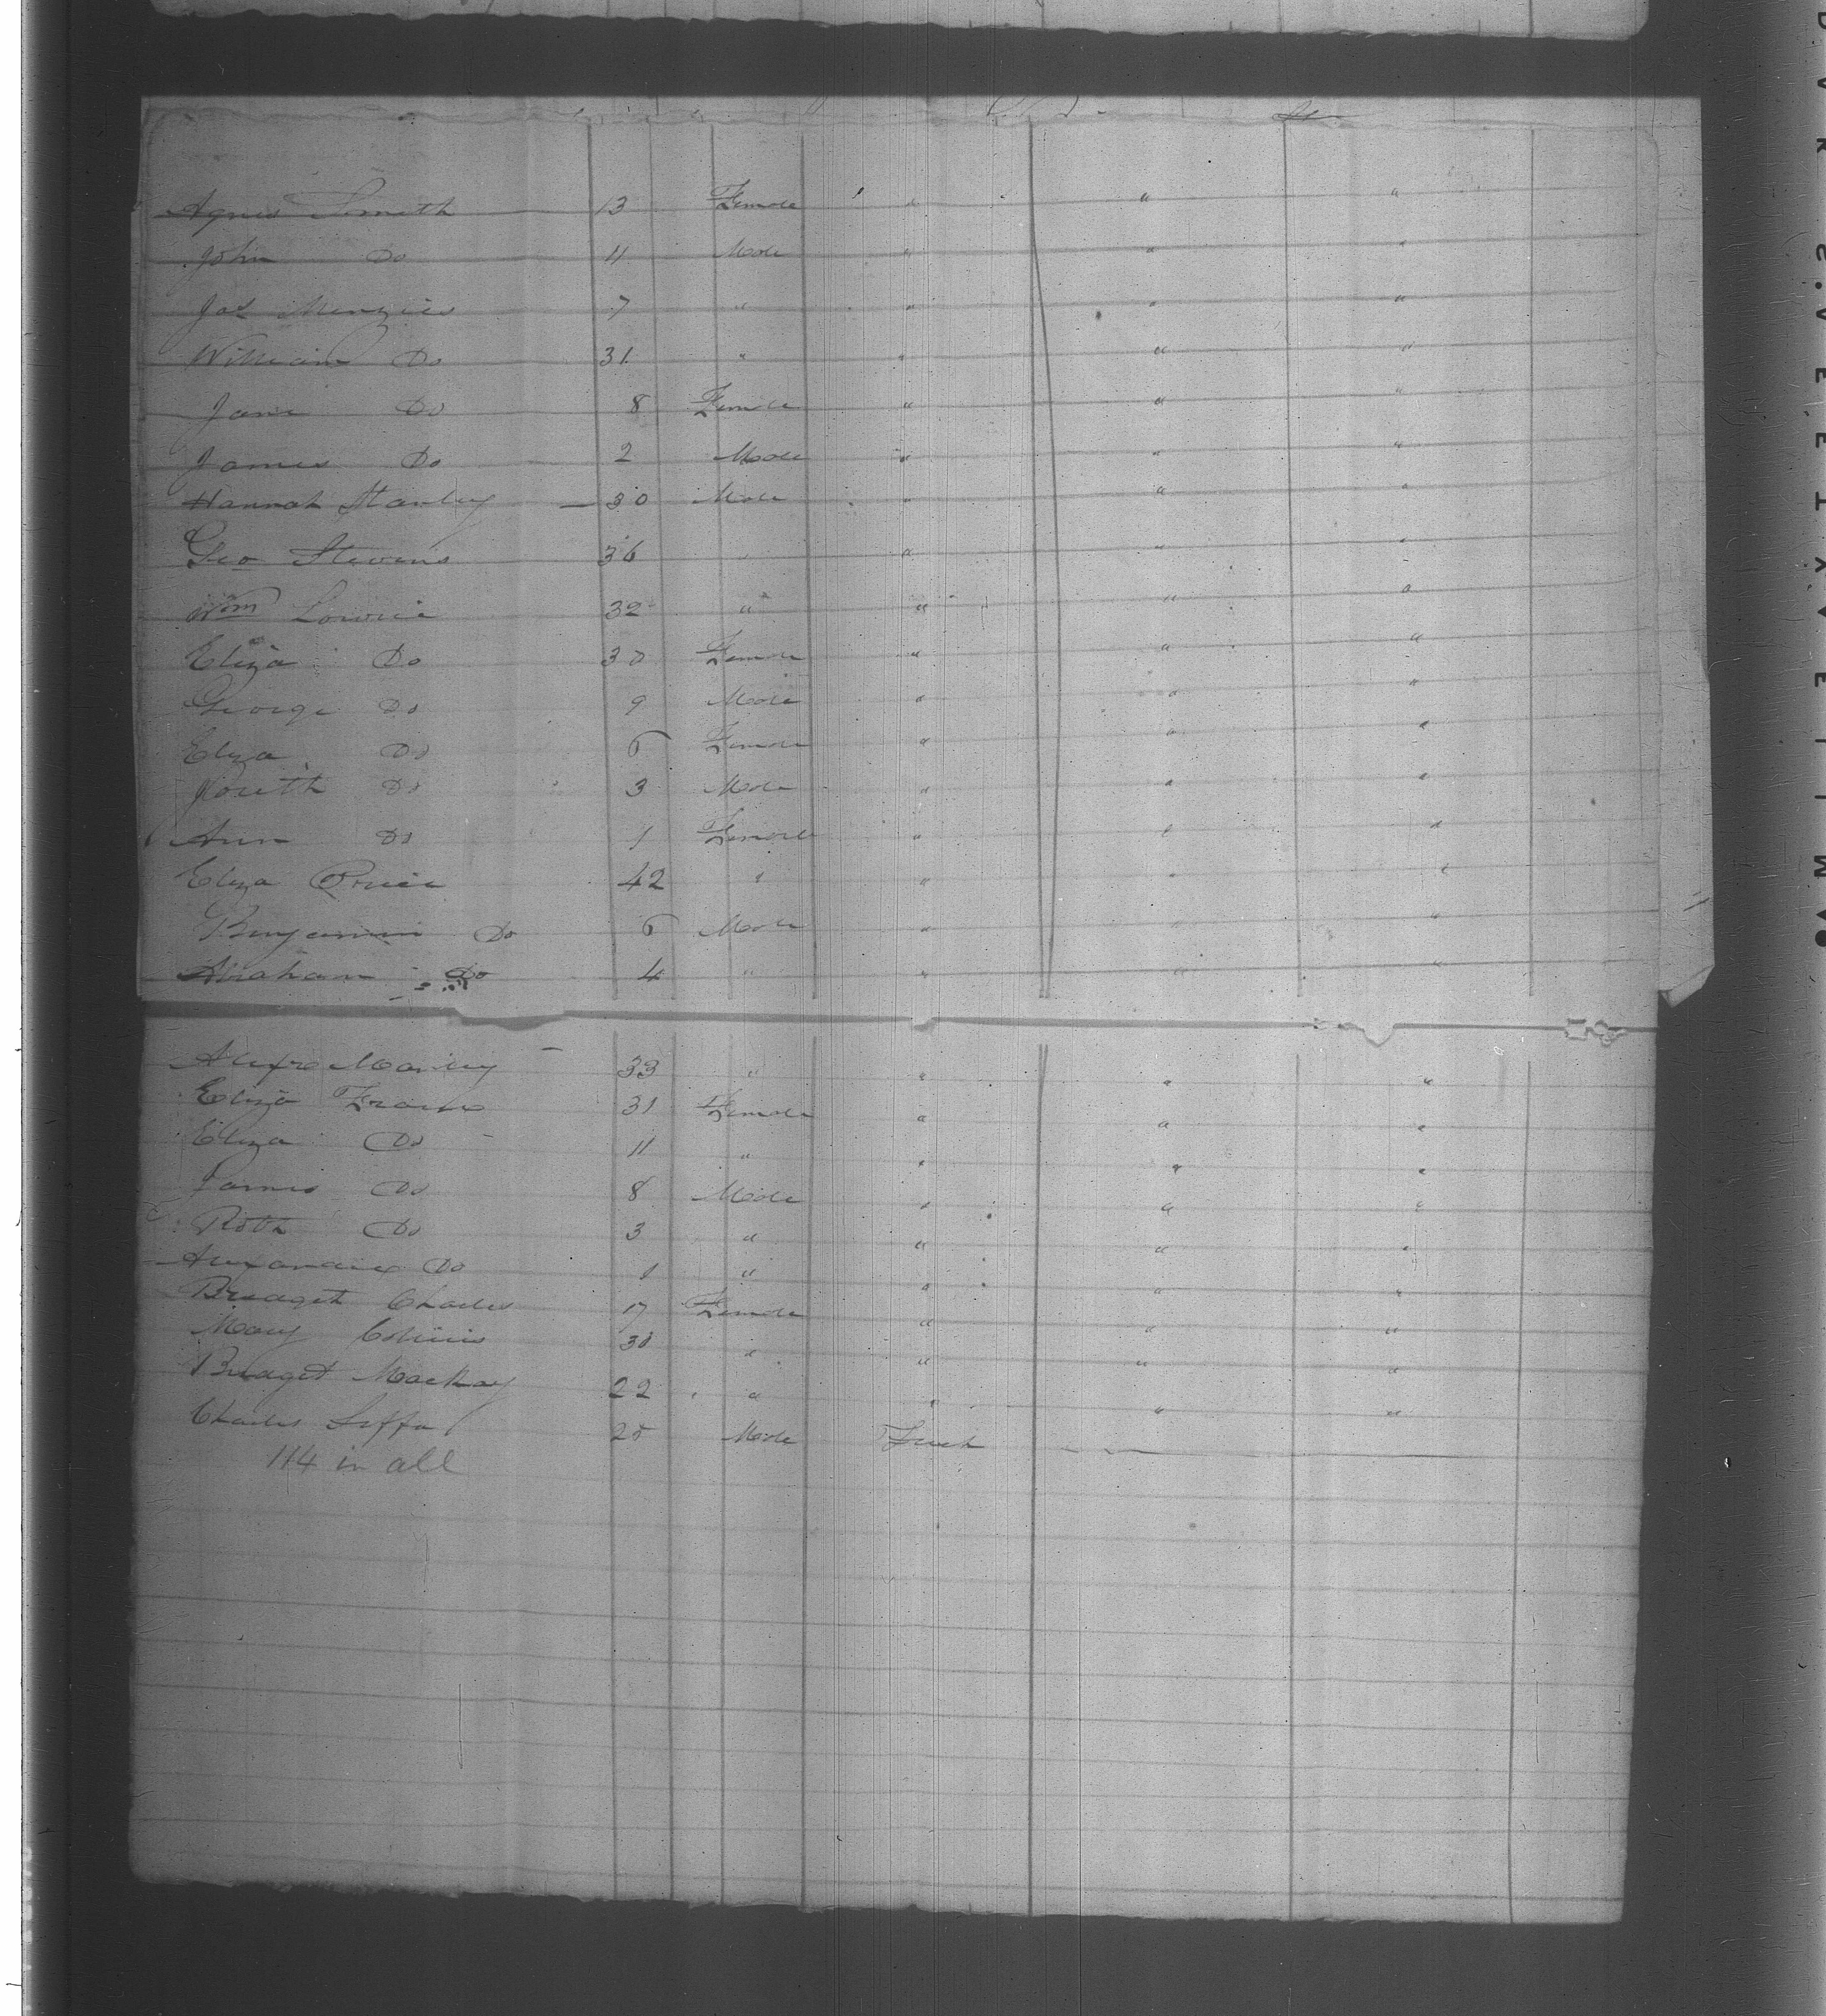 Agnes Smith 13 Female " " "
John Do 11 Male " " "
Jas Menzies 7 " " " "
William Do 31 " " " "
Jane Do 8 Female " " "
James Do 2 Male " " "
Hannah Stanley — 30 Male " " "
Geo Stevens 36 " " " "
Wm Lowrie 32 " " " "
Eliza Do 30 Female " " "
George Do 9 Male " " "
Eliza Do 6 Female " " "
Do 3 Male " " "
Ann Do 1 Female " " "
Eliza 42 " " " "
Benjamin Do 6 Male " " "
Abraham Do 4 " " " "
33 " " " "
Eliza 31 Female " " "
Eliza Do 11 " " " "
James Do 8 Male " " "
Do 3 " " " "
Do 1 " " " "
Bridget Charles 17 Female " " "
Mary Collins 30 " " " "
Bridget Mackay 22 " " " "
Charles Male
114 in all